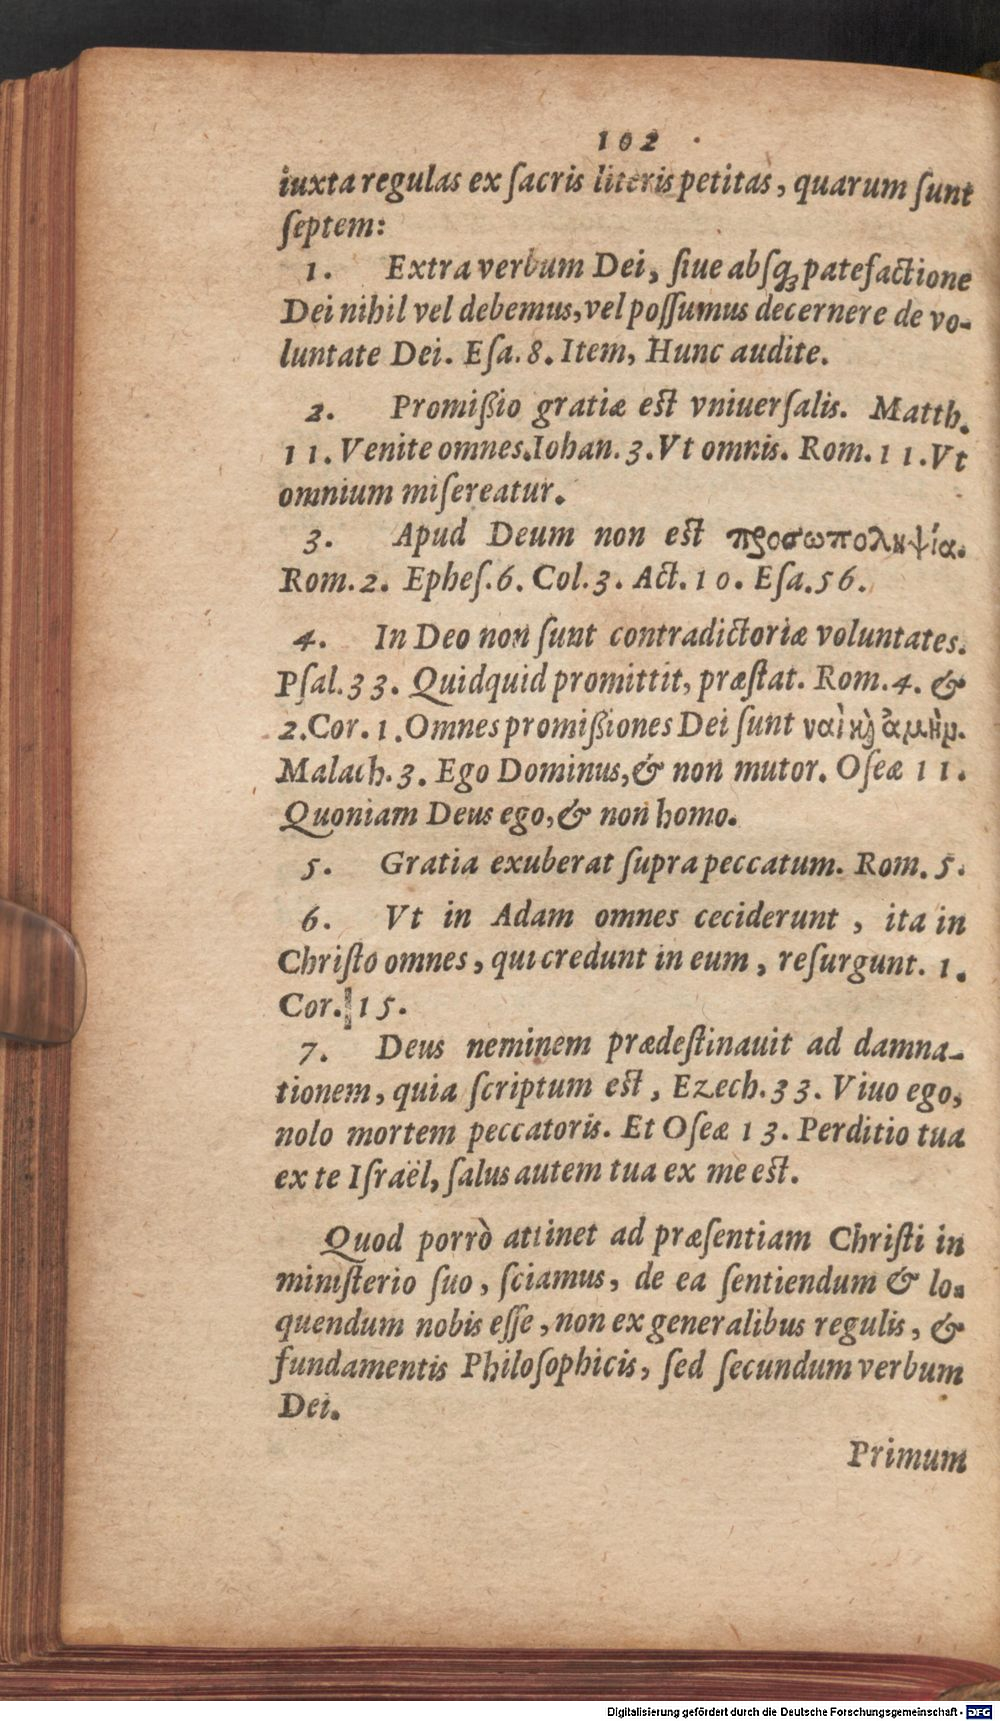 102
iuxta regulas ex ſacris literis petitas, quarum ſunt
ſeptem:
1. Extra verbum Dei, ſiue abſq́ꝫ patefactione
Dei nihil vel debemus, vel poſſumus decernere de vo-
luntate Dei. Eſa. 8. Item, Hunc audite.
2. Promißio gratiæ est vniuerſalis. Matth.
11. Venite omnes. Iohan. 3. Vt omnis. Rom. 11. Vt
omnium miſereatur.
3. Apud Deum non est προσωποληψία.
Rom. 2. Epheſ. 6. Col. 3. Act. 10. Eſa. 56.
4. In Deo non ſunt contradictoriæ voluntates.
Pſal. 33. Quidquid promittit, præſtat. Rom. 4. &
2. Cor. 1. Omnes promißiones Dei ſunt ναὶ κὶ ἀμὴν.
Malach. 3. Ego Dominus, & non mutor. Oſeæ 11.
Quoniam Deus ego, & non homo.
5. Gratia exuberat ſupra peccatum. Rom. 5.
6. Vt in Adam omnes ceciderunt, ita in
Chriſto omnes, qui credunt in eum, reſurgunt. 1.
Cor. 15.
7. Deus neminem prædeſtinauit ad damna-
tionem, quia ſcriptum est, Ezech. 33. Viuo ego,
nolo mortem peccatoris. Et Oſeæ 13. Perditio tua
ex te Iſraël, ſalus autem tua ex me est.
Quod porrò attinet ad præſentiam Chriſti in
miniſterio ſuo, ſciamus, de ea ſentiendum & lo-
quendum nobis eſſe, non ex generalibus regulis, &
fundamentis Philoſophicis, ſed ſecundum verbum
Dei.
Primum
Digitalisierung gefördert durch die Deutsche Forschungsgemeinschaft - DFG